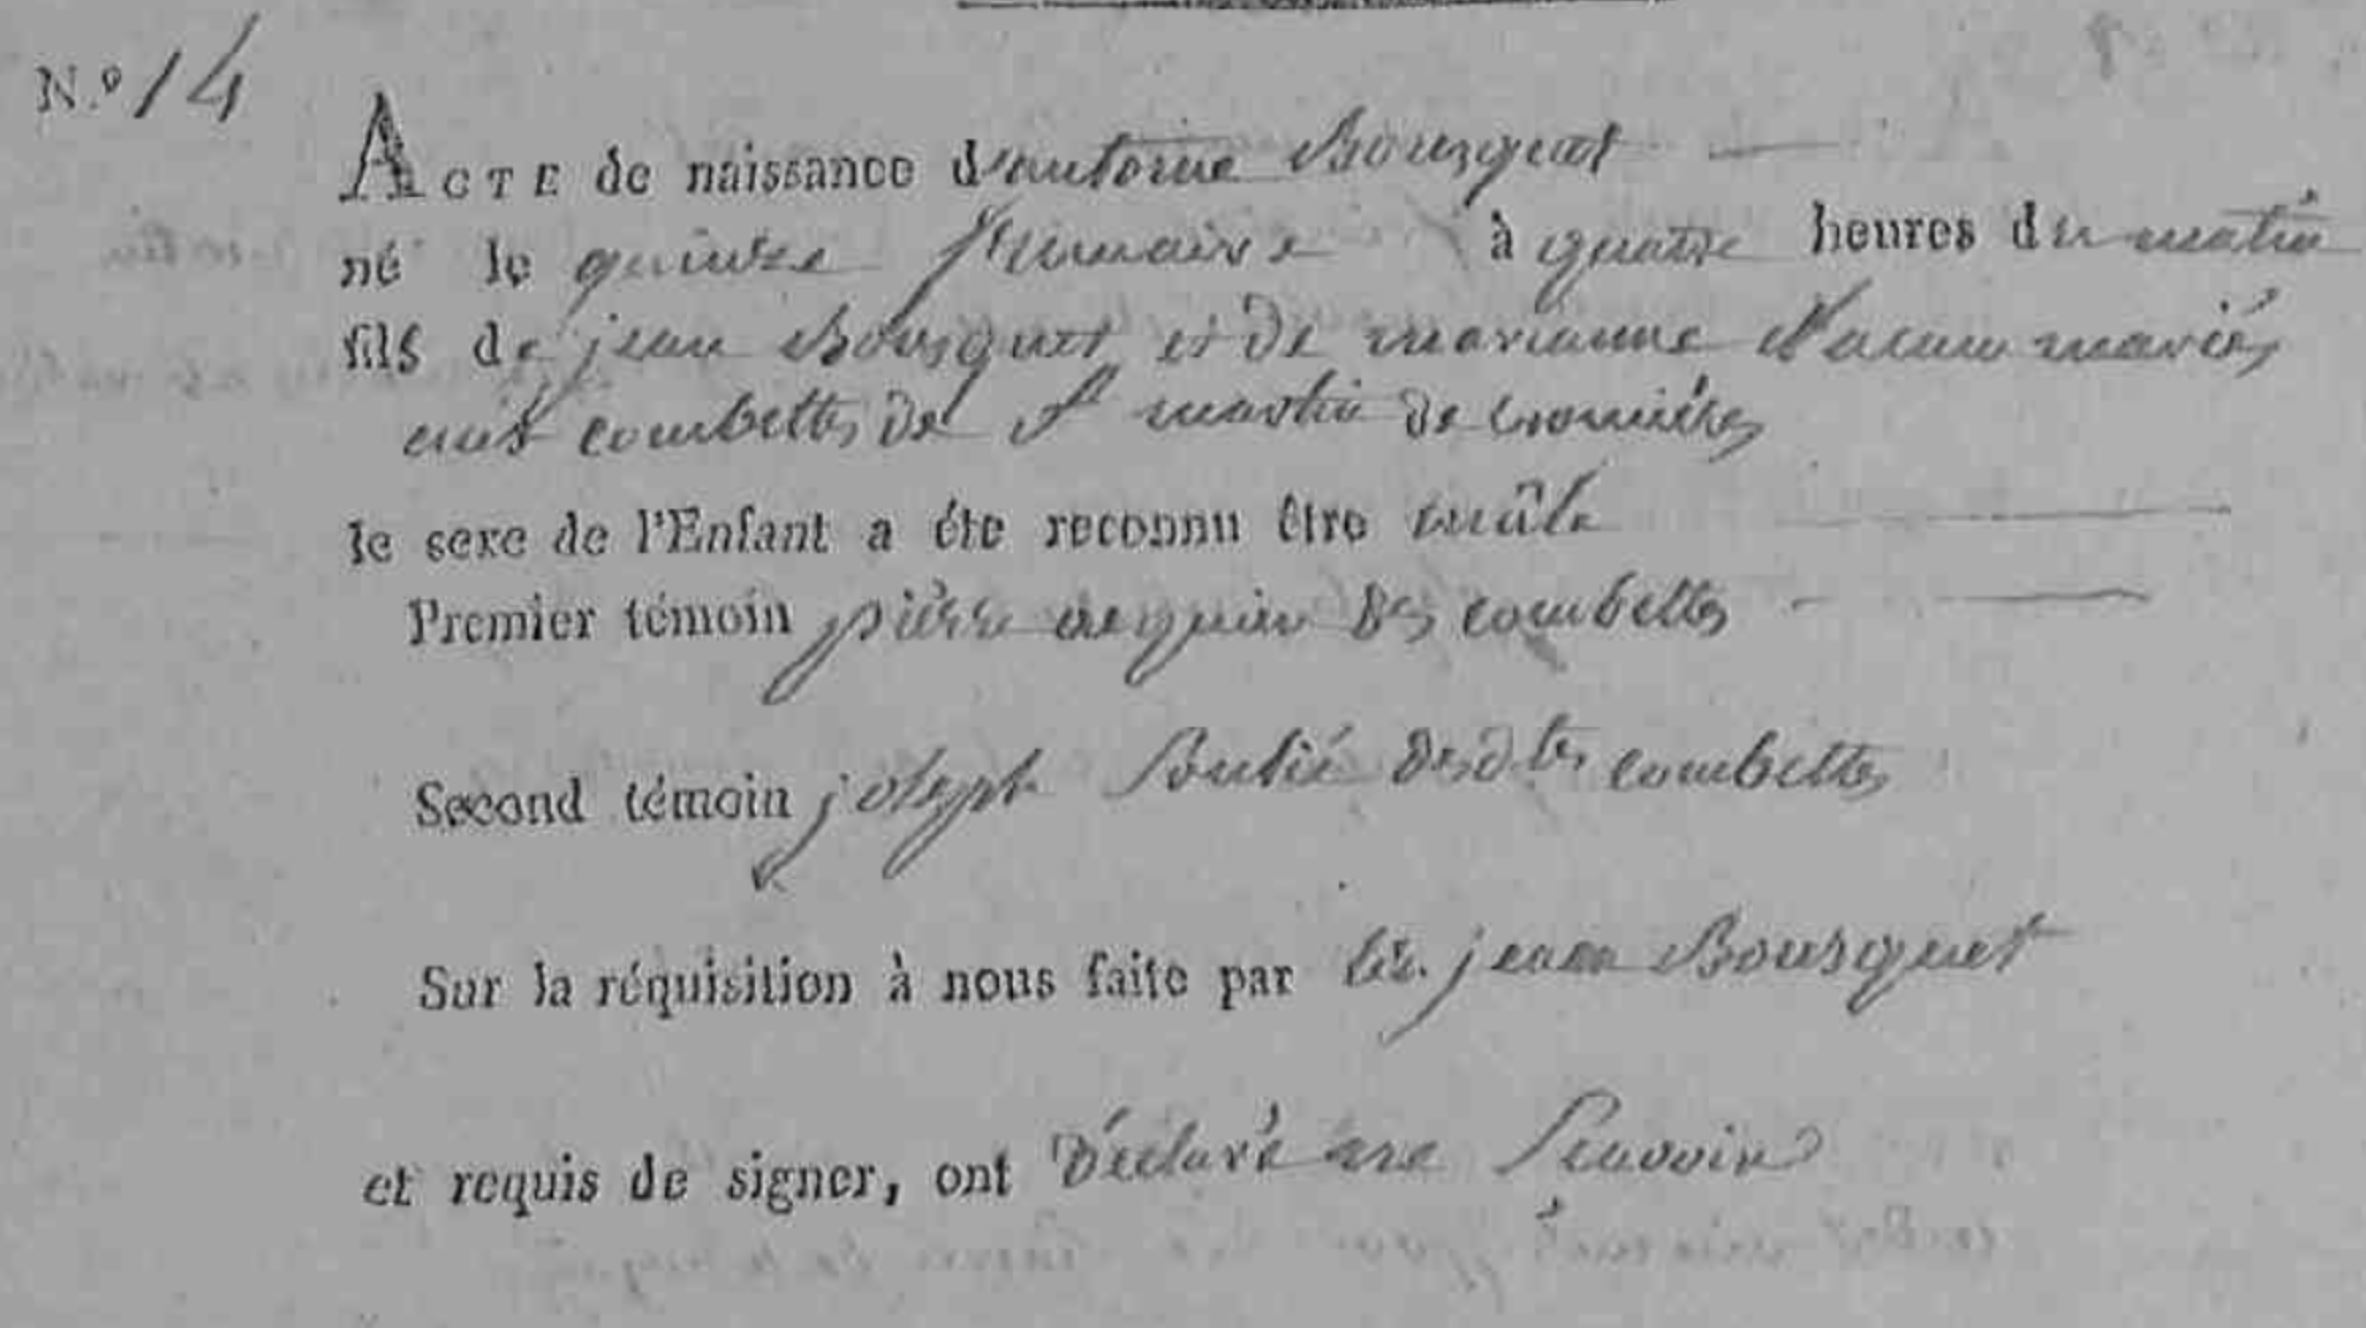 N.º 14
ACTE de naissance d'antoine Bousquet
né le quinze frimaire à quatre heures du matin
fils de jean Bousquet et de marianne mariés
aux combettes de St martin de
le sexe de l'Enfant a éte reconnu être mâle
Premier témoin pierre des combettes
Second témoin joseph Soulié desdtes combettes
Sur la réquisition à nous faite par jean Bousquet
et requis de signer, ont déclaré ne Scavoir